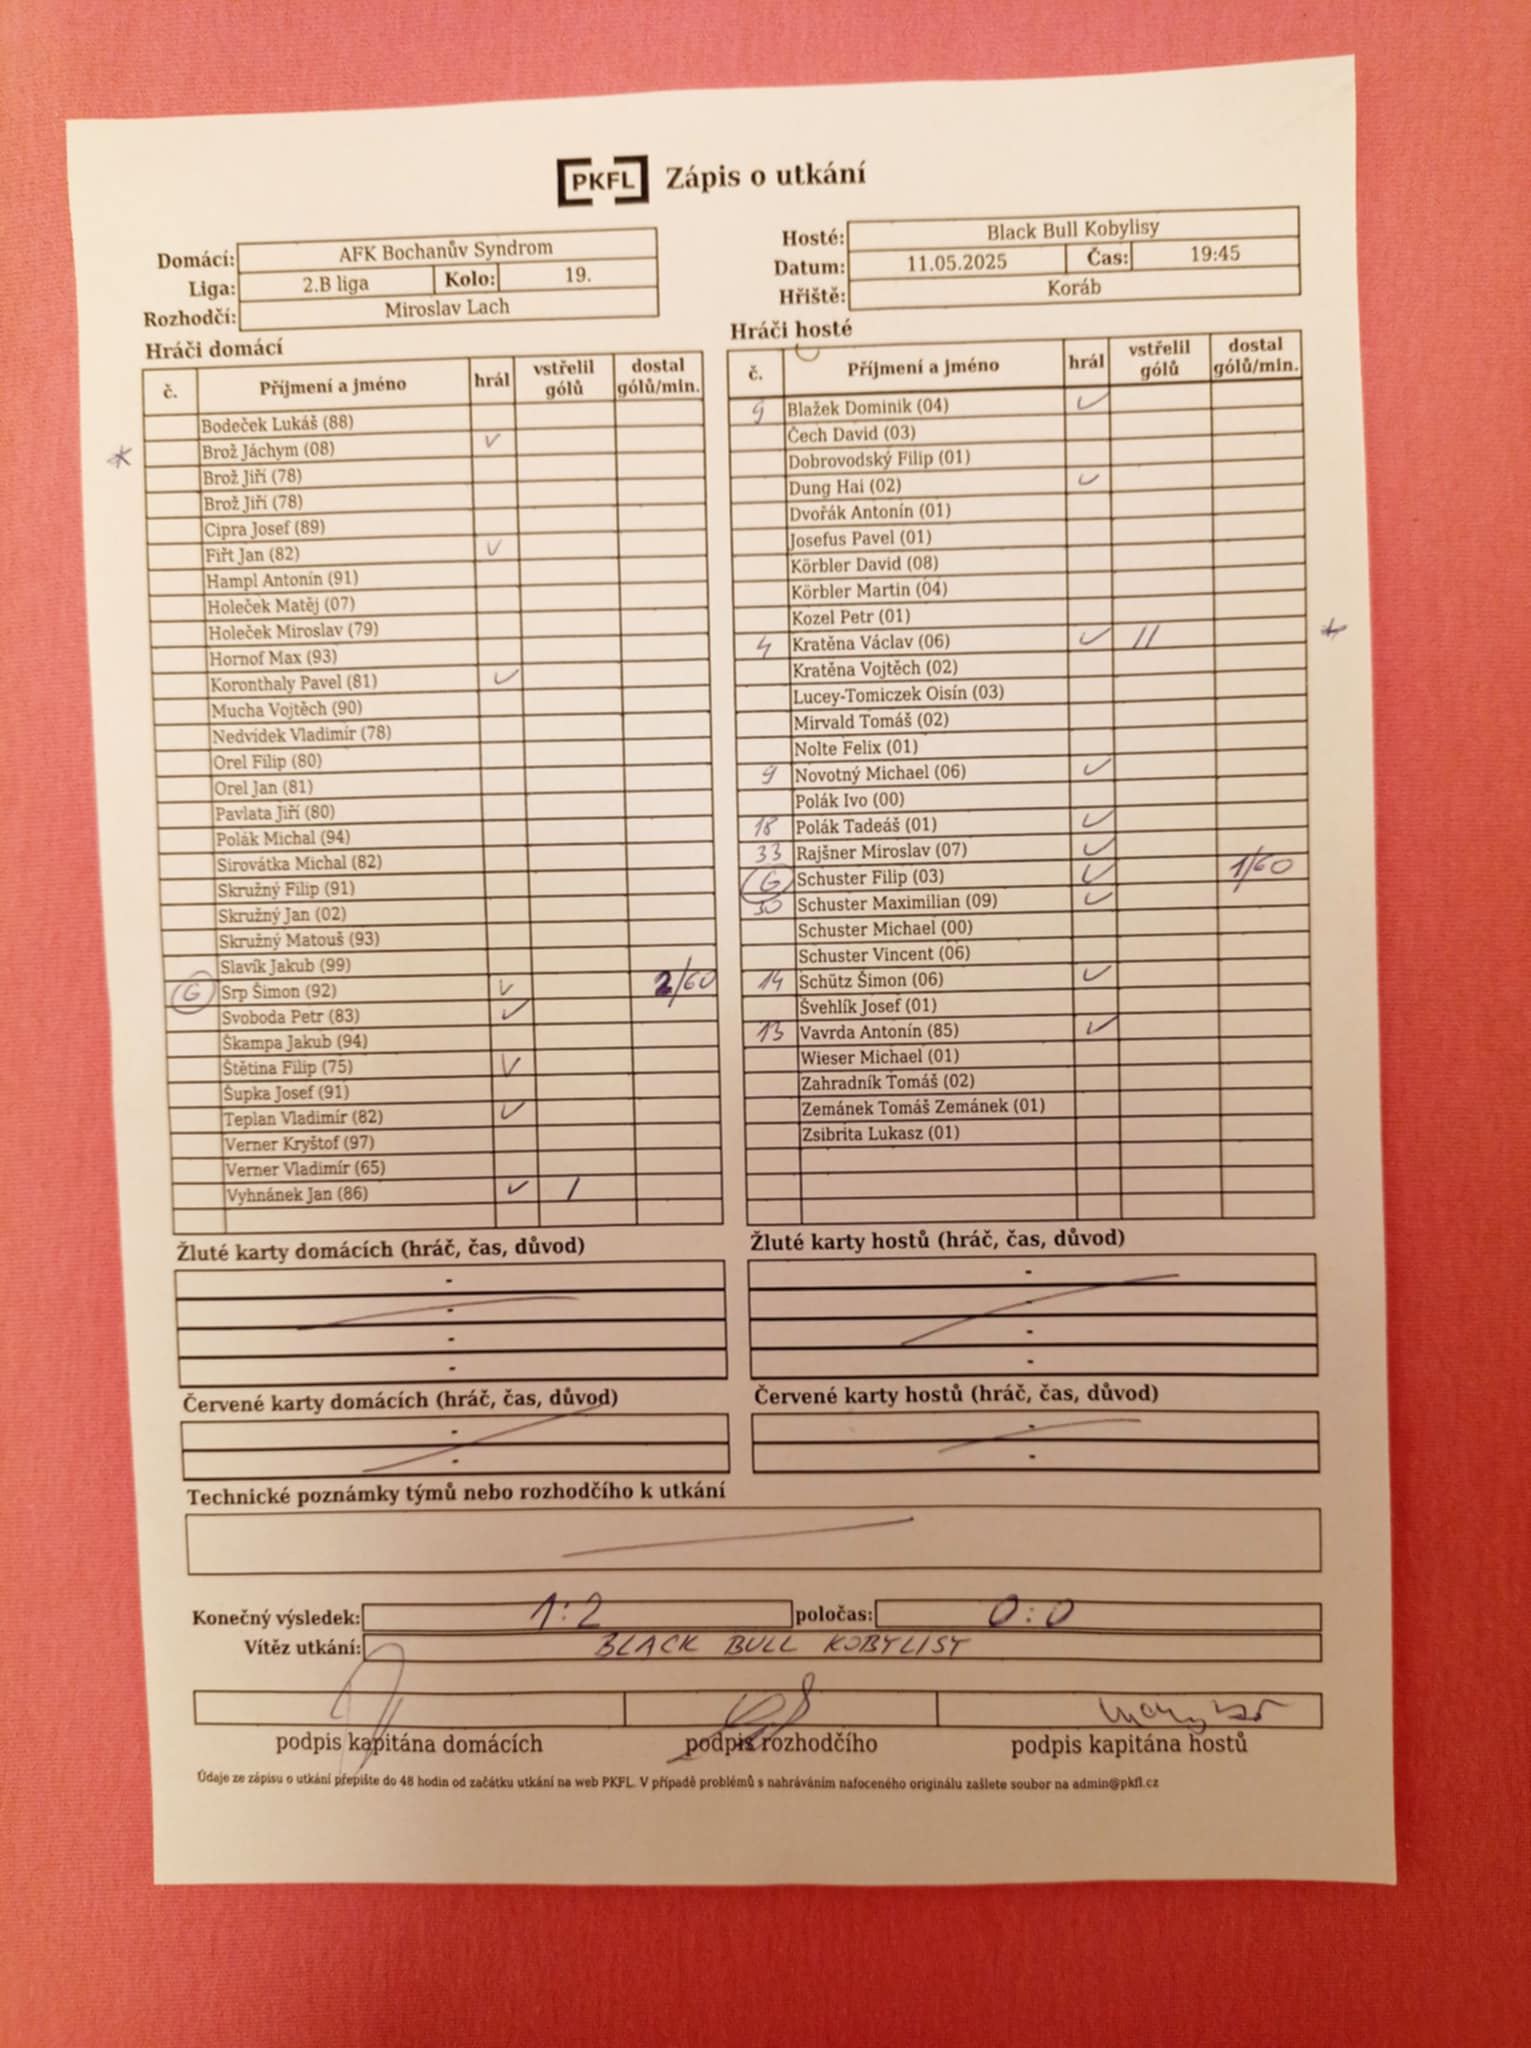 PKFL Zápis o utkání
Domácí: AFK Bochanův Syndrom
Liga: 2.B liga Kolo: 19.
Rozhodčí: Miroslav Lach
Hosté: Black Bull Kobylisy
Datum: 11.05.2025 Čas: 19:45
Hřiště: Koráb
Hráči domácí
č. Příjmení a jméno hrál vstřelil gólů dostal gólů/min.
Bodeček Lukáš (88)
* Brož Jáchym (08) ✓
Brož Jiří (78)
Brož Jiří (78)
Cipra Josef (89)
Fiřt Jan (82) ✓
Hampl Antonín (91)
Holeček Matěj (07)
Holeček Miroslav (79)
Hornof Max (93)
Koronthaly Pavel (81) ✓
Mucha Vojtěch (90)
Nedvídek Vladimír (78)
Orel Filip (80)
Orel Jan (81)
Pavlata Jiří (80)
Polák Michal (94)
Sirovátka Michal (82)
Skružný Filip (91)
Skružný Jan (02)
Skružný Matouš (93)
Slavík Jakub (99)
G Srp Šimon (92) ✓ 2/60
Svoboda Petr (83) ✓
Škampa Jakub (94)
Štětina Filip (75) ✓
Šupka Josef (91)
Teplan Vladimír (82) ✓
Verner Kryštof (97)
Verner Vladimír (65)
Vyhnánek Jan (86) ✓ /
Hráči hosté
č. Příjmení a jméno hrál vstřelil gólů dostal gólů/min.
9 Blažek Dominik (04) ✓
Čech David (03)
Dobrovodský Filip (01)
Dung Hai (02) ✓
Dvořák Antonín (01)
Josefus Pavel (01)
Körbler David (08)
Körbler Martin (04)
Kozel Petr (01)
4 Kratěna Václav (06) ✓ // *
Kratěna Vojtěch (02)
Lucey-Tomiczek Oisín (03)
Mirvald Tomáš (02)
Nolte Felix (01)
9 Novotný Michael (06) ✓
Polák Ivo (00)
18 Polák Tadeáš (01) ✓
33 Rajšner Miroslav (07) ✓
G Schuster Filip (03) ✓ 1/60
30 Schuster Maximilian (09) ✓
Schuster Michael (00)
Schuster Vincent (06)
14 Schütz Šimon (06) ✓
Švehlík Josef (01)
13 Vavrda Antonín (85) ✓
Wieser Michael (01)
Zahradník Tomáš (02)
Zemánek Tomáš Zemánek (01)
Zsibrita Lukasz (01)
Žluté karty domácích (hráč, čas, důvod)
-
-
-
-
Žluté karty hostů (hráč, čas, důvod)
-
-
-
-
Červené karty domácích (hráč, čas, důvod)
-
-
Červené karty hostů (hráč, čas, důvod)
-
-
Technické poznámky týmů nebo rozhodčího k utkání
Konečný výsledek: 1:2 poločas: 0:0
Vítěz utkání: BLACK BULL KOBYLISY
podpis kapitána domácích podpis rozhodčího podpis kapitána hostů
Údaje ze zápisu o utkání přepište do 48 hodin od začátku utkání na web PKFL. V případě problémů s nahráváním nafoceného originálu zašlete soubor na admin@pkfl.cz